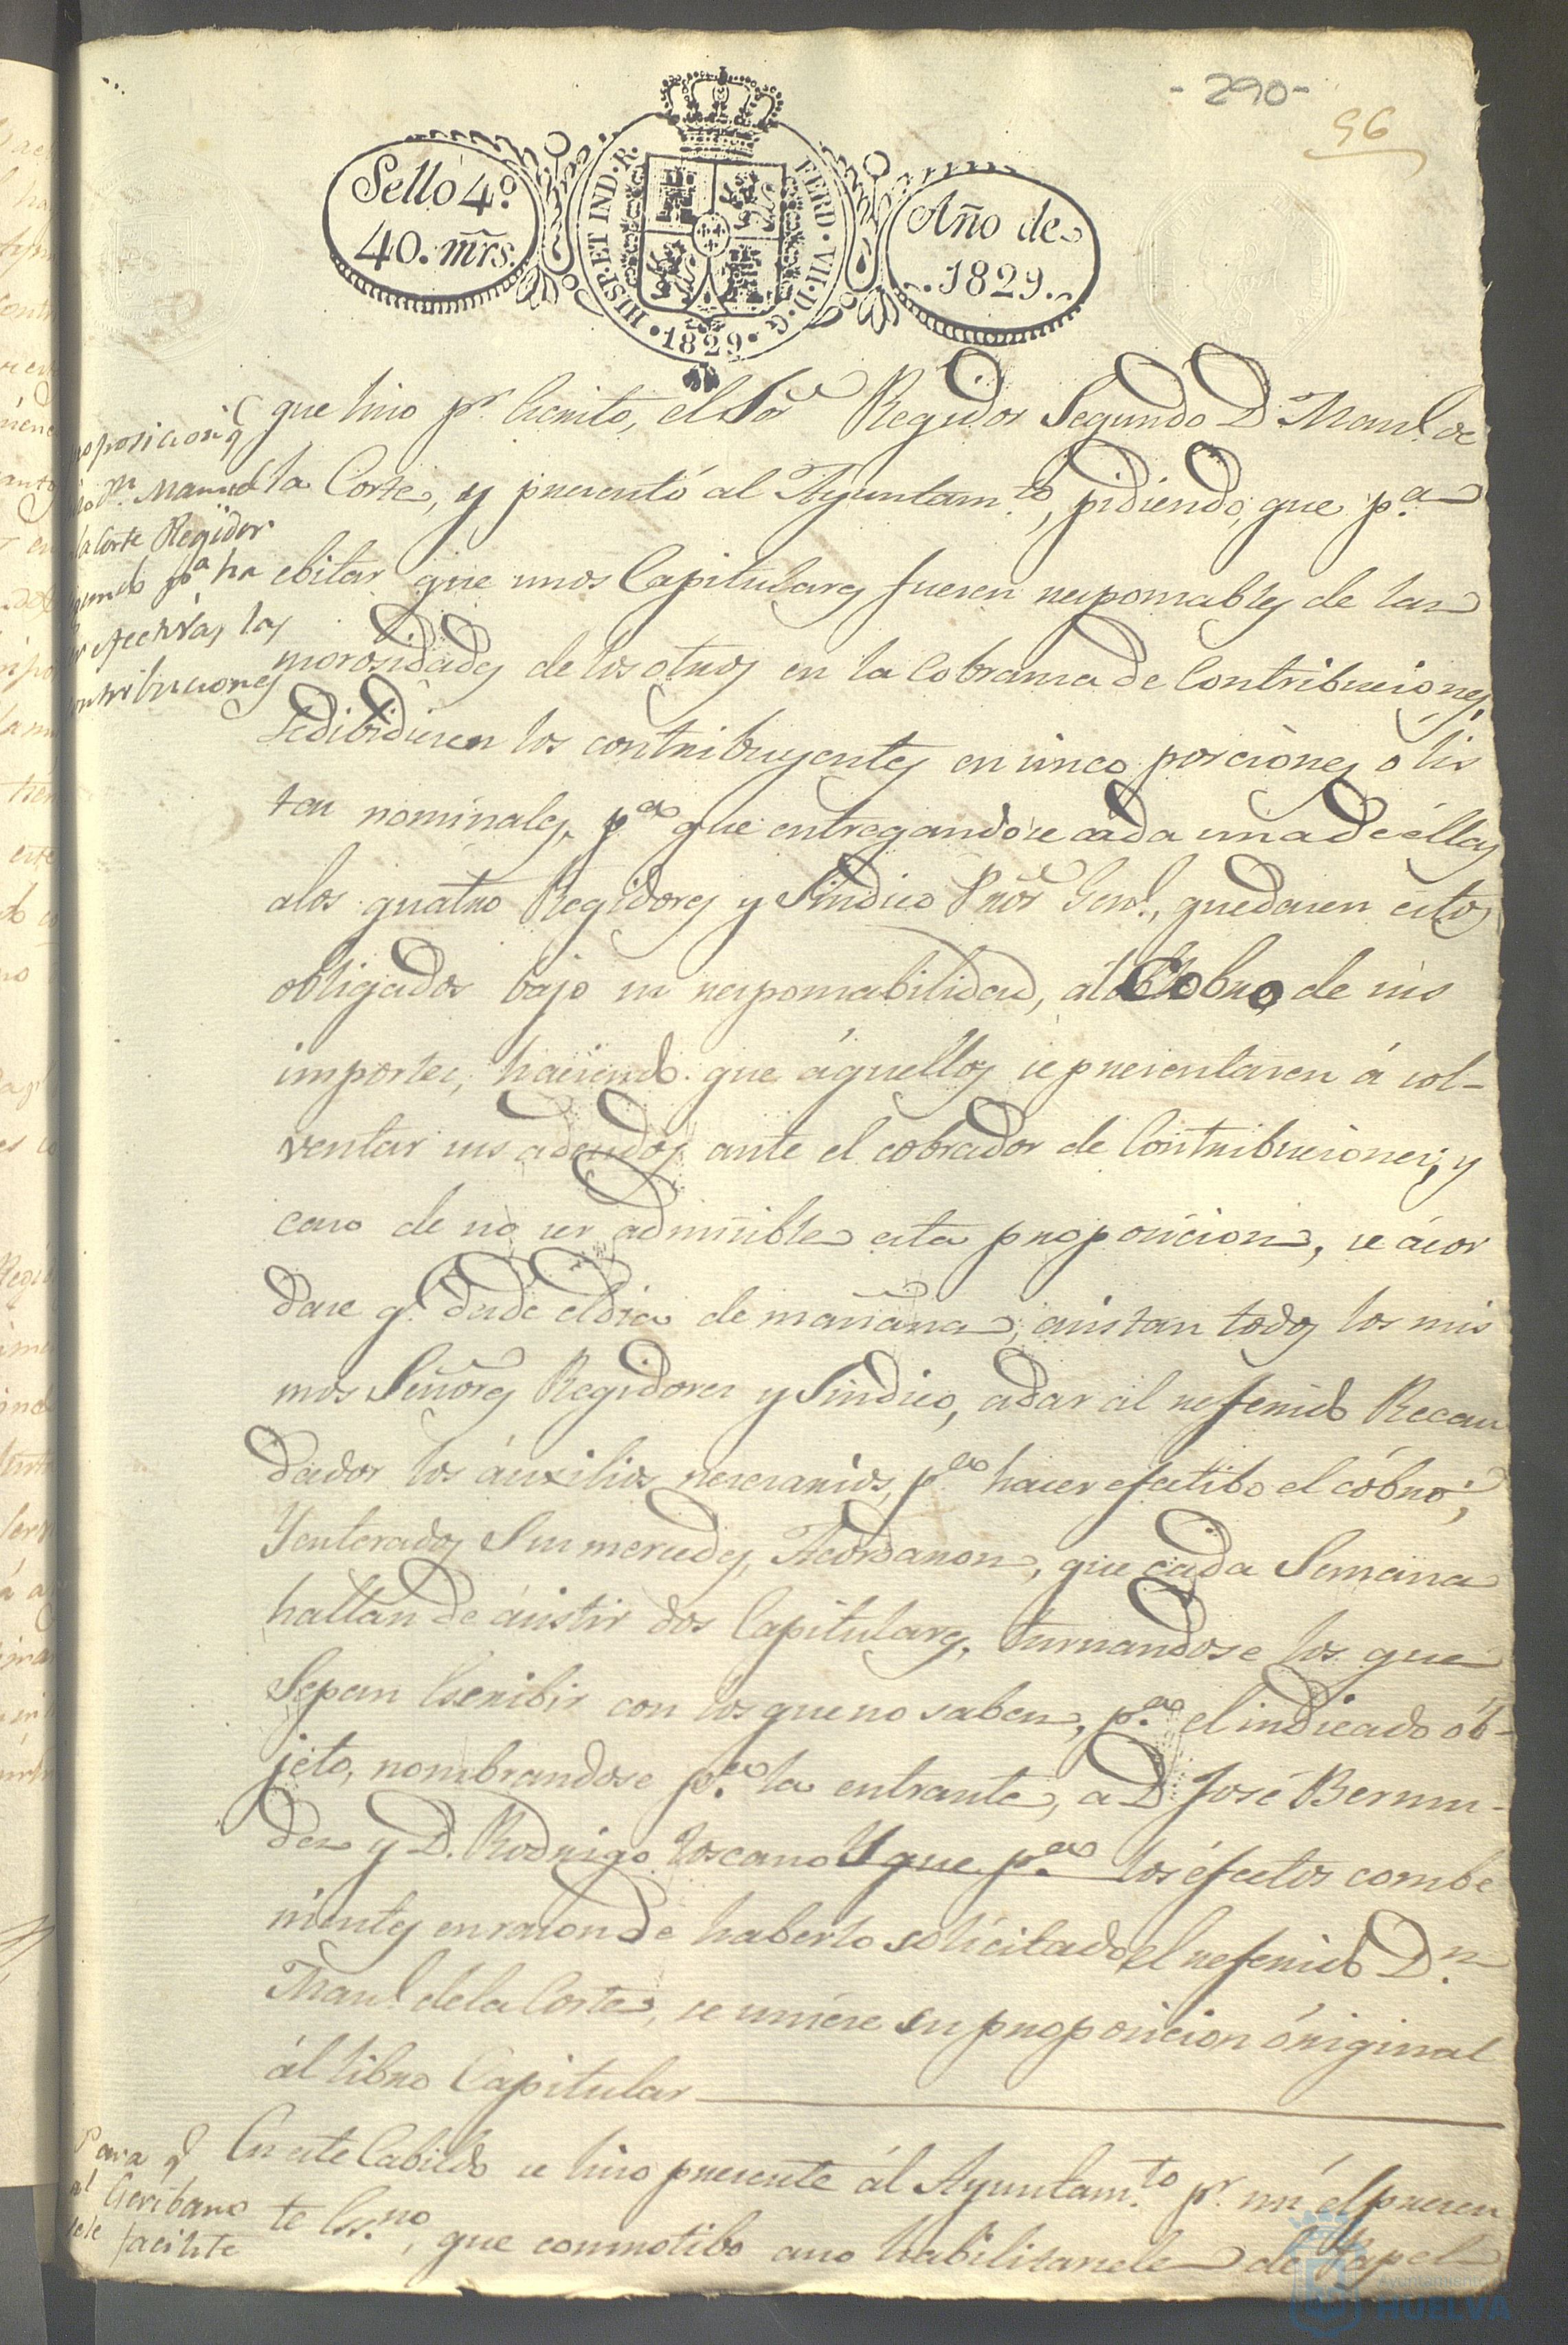 -290-
96
Sello 4º
40. mrs.
HISP. ET IND. R.
FERD. VII. D. G.
1829
Año de
1829.
oposicion q
hio Dn. Manuel
la Corte Regidor
gundo pa. ha
er efectivas las
ontribuciones
que hiso pr. Escrito, el Sor. Regidor Segundo D. Manl. de
la Corte, y presentó al Ayuntamto., pidiendo, que pa.
ebitar que unos Capitulares fuesen responsables de las
morosidades de los otros en la Cobransa de Contribuciones,
se dibidiesen los contribuyentes en cinco porciones, o lis
tas nominales, pa. que entregandose cada una de éllas
a los quatro Regidores y Sindico Pror. Genl., quedasen estos
obligados bajo su responsabilidad, al Cobro de sus
importes, haciendo que áquellos se presentasen á sol-
ventar sus adeudos ante el cobrador de Contribuciones; y
caso de no ser admisible esta proposicion, se ácor
dase q. desde el dia de mañana, asistan todos los mis
mos Señores Regidores y Sindico, a dar al referido Recau
dador los áuxilios nesesarios, pa. hacer efectibo el cóbro;
Y enterados Sus mercedes, Acordaron, que cada Semana
hallan de ásistir dos Capitulares, turnandose los que
Sepan Escribir con los que no saben, pa. el indicado ób-
jeto, nombrandose pa. la entrante, a D. José Bermu-
des y D. Rodrigo Toscano Y que pa. los éfectos combe
nientes en rason de haberlo solicitado el referido Dn.
Manl. de la Corte, se uniese su proposicion óriginal
ál libro Capitular
Para q
al Escribano
se le facilite
En este Cabildo se hiso presente ál Ayuntamto. pr. mi el presen
te Essno., que con motibo a no habilitarsele de Papel
Ayuntamiento
HUELVA